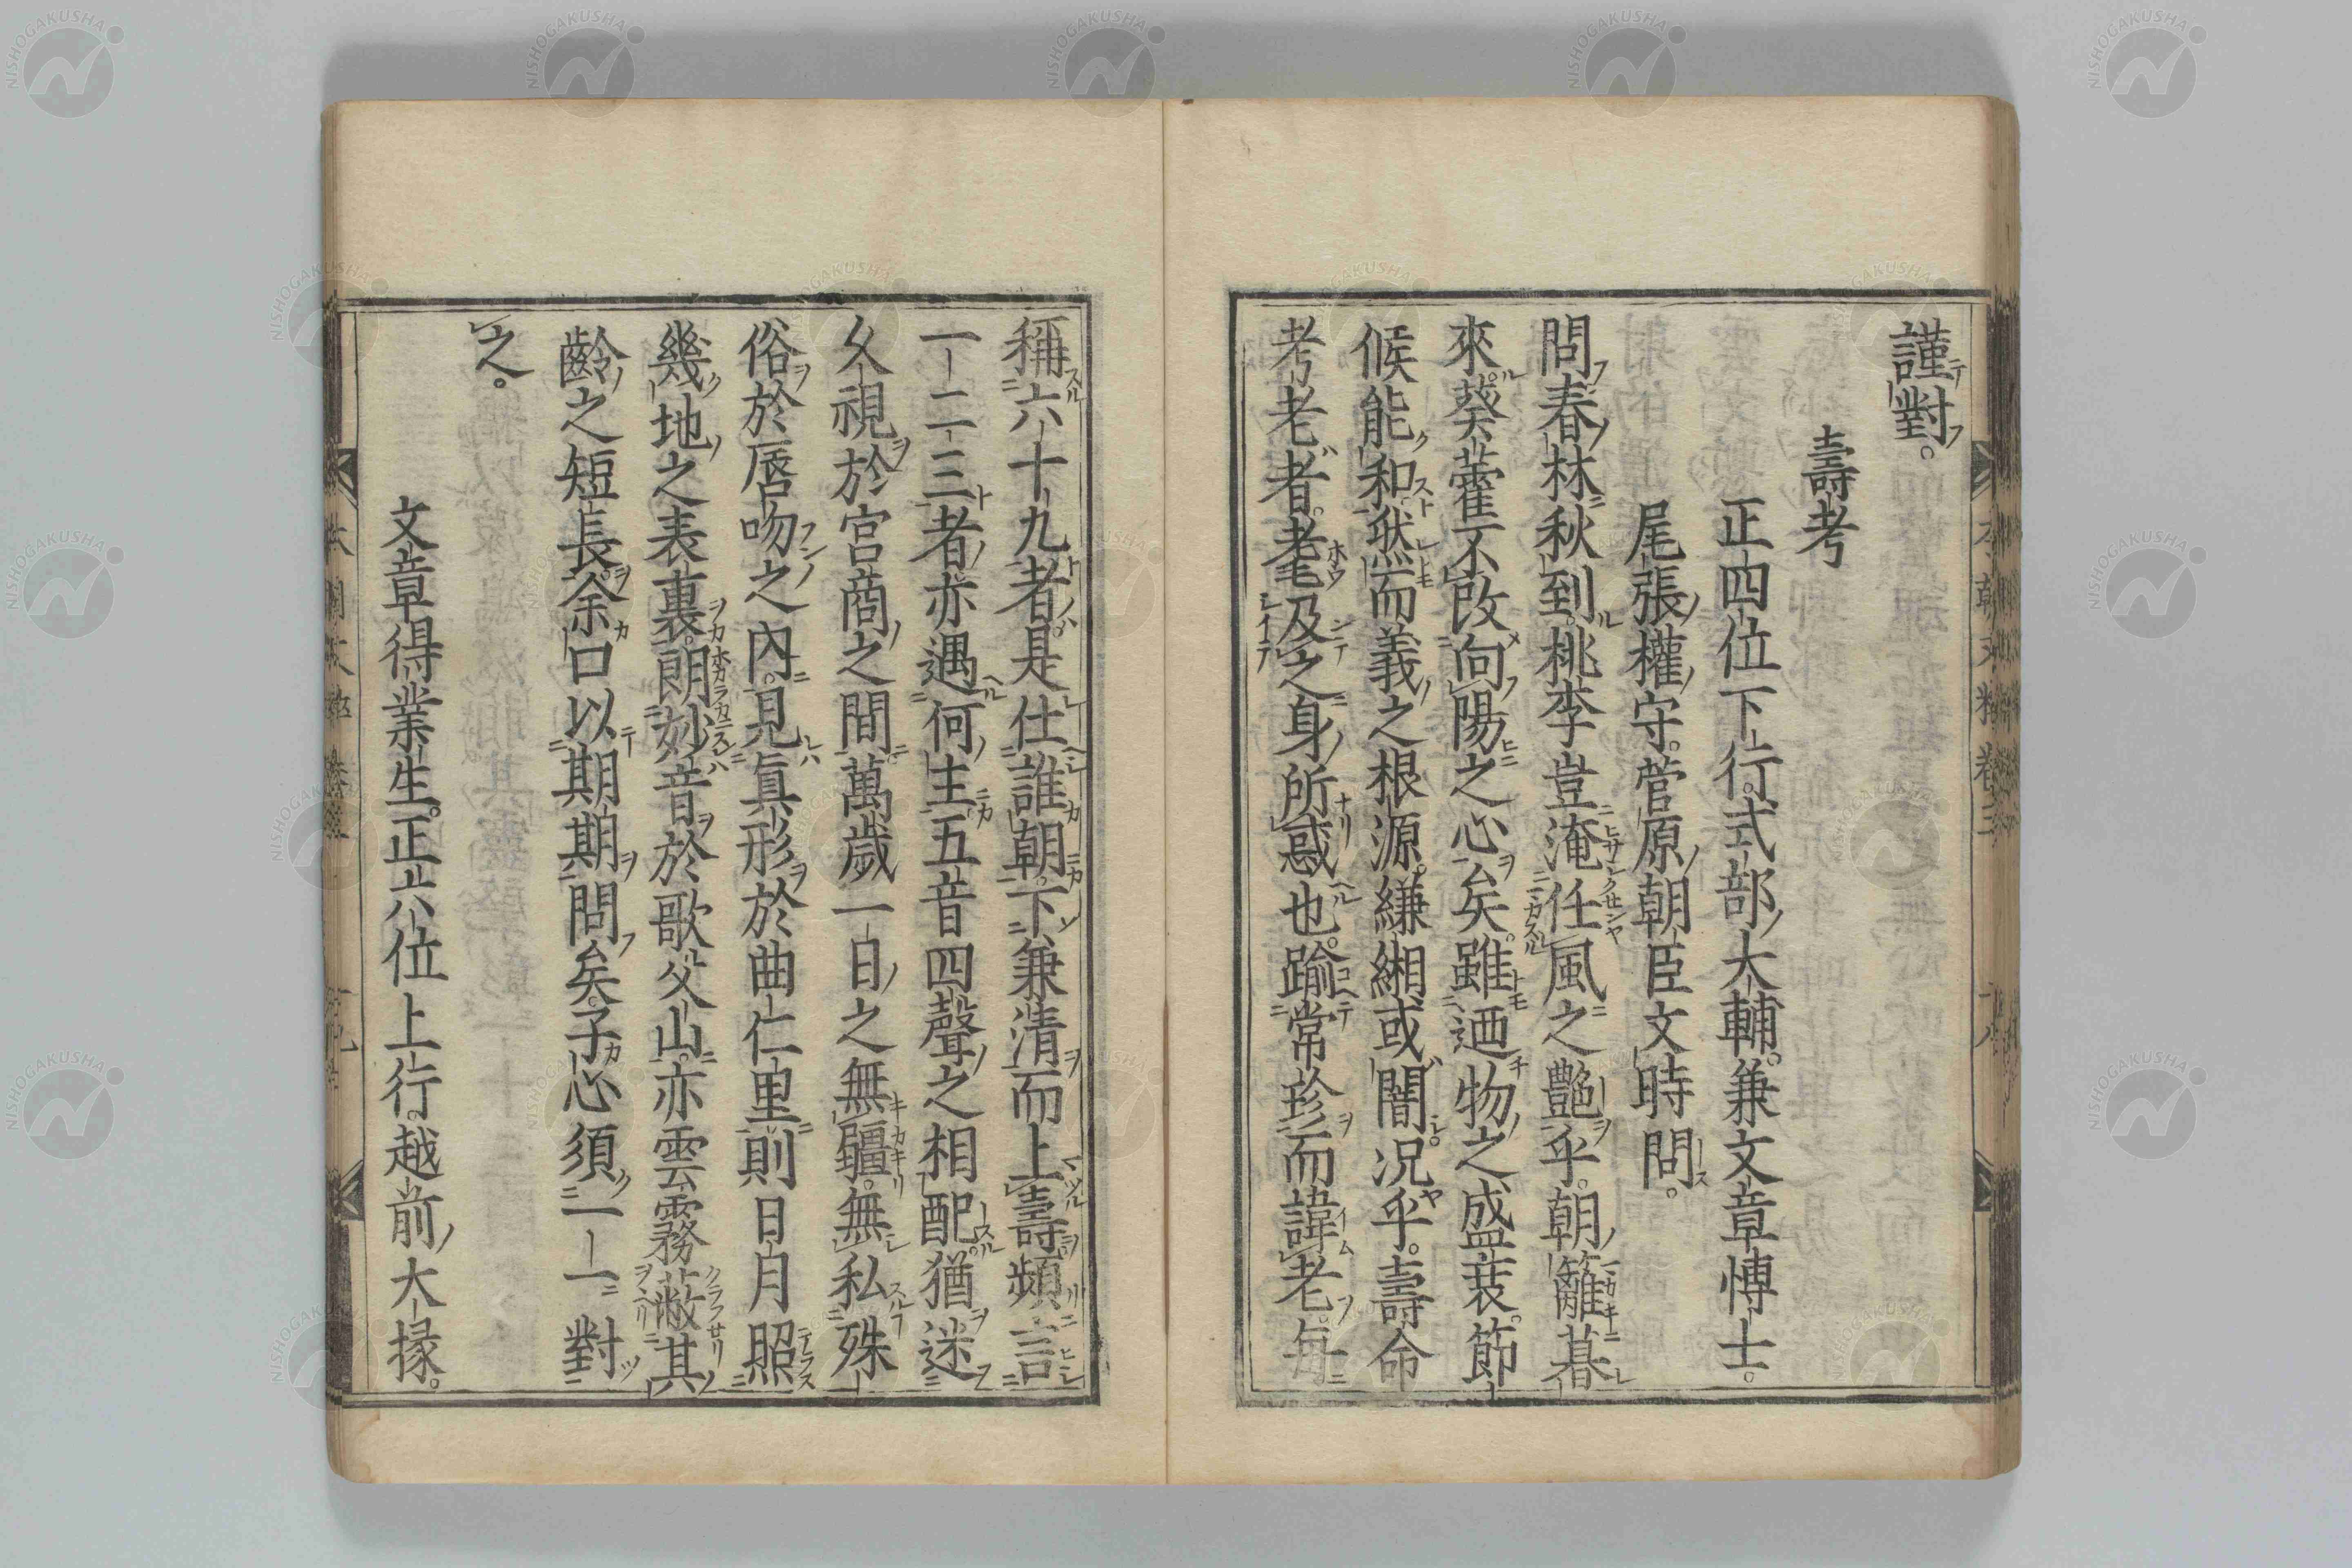 謹對。
壽考
正四位下行式部大輔。兼文章博士。
尾張權守。菅原朝臣文時問。
問春林秋到。桃李豈淹任風之艶乎。朝籬暮
來。葵藿不改向陽之心矣。雖迺物之盛衰。節
候能和。然而義之根源。縑緗或闇。况乎。壽命
考老者。耄及之身。所惑也。踰常珍而諱老。每
稱六十九者。是仕誰朝。下兼清而上壽。頻言
一二三者。亦遇何主。五音四聲之相配。猶迷
久視於宮商之間。萬歲一日之無疆。無私殊
俗於唇吻之內。見眞形於曲仁里。則日月照
幾地之表裏。朗妙音於歌父山。亦雲霧蔽其
齡之短長。余口以期期問矣。子心須一一對
之。
文章得業生。正六位上行。越前大掾。